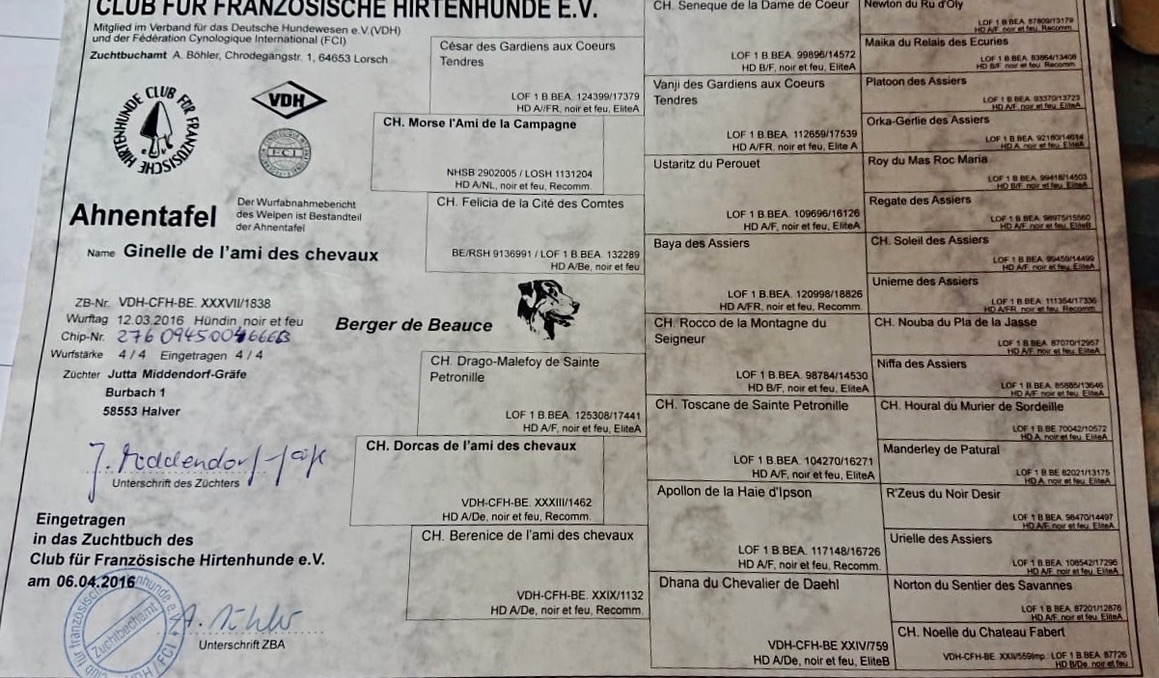 CLUB FÜR FRANZÖSISCHE HIRTENHUNDE E.V.
Mitglied im Verband für das Deutsche Hundewesen e.V.(VDH)
und der Fédération Cynologique International (FCI)
Zuchtbuchamt A. Böhler, Chrodegangstr. 1, 64653 Lorsch
CLUB FÜR FRANZÖSISCHE HIRTENHUNDE
VDH
FCI
Ahnentafel
Der Wurfabnahmebericht
des Welpen ist Bestandteil
der Ahnentafel
Name Ginelle de l'ami des chevaux
ZB-Nr. VDH-CFH-BE. XXXVII/1838
Wurftag 12.03.2016 Hündin noir et feu
Chip-Nr.
Wurfstärke 4 / 4 Eingetragen 4 / 4
Züchter Jutta Middendorf-Gräfe
Burbach 1
58553 Halver
Unterschrift des Züchters
Eingetragen
in das Zuchtbuch des
Club für Französische Hirtenhunde e.V.
am 06.04.2016
Zuchtbuchamt
Unterschrift ZBA
Berger de Beauce
César des Gardiens aux Coeurs
Tendres
LOF 1 B.BEA. 124399/17379
HD A//FR, noir et feu, EliteA
CH. Morse l'Ami de la Campagne
NHSB 2902005 / LOSH 1131204
HD A/NL, noir et feu, Recomm.
CH. Felicia de la Cité des Comtes
BE/RSH 9136991 / LOF 1 B BEA. 132289
HD A/Be, noir et feu
CH. Drago-Malefoy de Sainte
Petronille
LOF 1 B.BEA. 125308/17441
HD A/F, noir et feu, EliteA
CH. Dorcas de l'ami des chevaux
VDH-CFH-BE. XXXIII/1462
HD A/De, noir et feu, Recomm.
CH. Berenice de l'ami des chevaux
VDH-CFH-BE. XXIX/1132
HD A/De, noir et feu, Recomm.
CH. Seneque de la Dame de Coeur
LOF 1 B BEA. 99896/14572
HD B/F, noir et feu, EliteA
Vanji des Gardiens aux Coeurs
Tendres
LOF 1 B.BEA. 112659/17539
HD A/FR, noir et feu, Elite A
Ustaritz du Perouet
LOF 1 B.BEA. 109696/16126
HD A/F, noir et feu, EliteA
Baya des Assiers
LOF 1 B.BEA. 120998/18826
HD A/FR, noir et feu, EliteA
CH. Rocco de la Montagne du
Seigneur
LOF 1 B.BEA. 98784/14530
HD B/F, noir et feu, EliteA
CH. Toscane de Sainte Petronille
LOF 1 B.BEA. 104270/16271
HD A/F, noir et feu, EliteA
Apollon de la Haie d'Ipson
LOF 1 B.BEA. 117148/16726
HD A/F, noir et feu, Recomm.
Dhana du Chevalier de Daehl
VDH-CFH-BE XXIV/759
HD A/De, noir et feu, EliteB
Newton du Ru d'Oly
HD A/F, noir et feu, Recomm.
Maika du Relais des Ecuries
HD B/F, noir et feu, Recomm.
Platoon des Assiers
LOF 1 B BEA. 93370/13723
HD A/F, noir et feu, EliteA
Orka-Gerlie des Assiers
HD A, noir et feu, EliteA
Roy du Mas Roc Maria
LOF 1 B BEA. 99418/14503
HD B/F, noir et feu, EliteA
Regate des Assiers
HD A/F, noir et feu, EliteB
CH. Soleil des Assiers
HD A/F, noir et feu, EliteA
Unieme des Assiers
LOF 1 B BEA. 111354/17336
HD A/FR, noir et feu, EliteA
CH. Nouba du Pla de la Jasse
LOF 1 B BEA. 87070/12957
HD A/F, noir et feu, EliteA
Niffa des Assiers
HD A/F, noir et feu, EliteA
CH. Houral du Murier de Sordeille
LOF 1 B.BE 70042/10572
HD A, noir et feu, EliteA
Manderley de Patural
LOF 1 B.BE 82021/13175
HD A, noir et feu, EliteA
R'Zeus du Noir Desir
LOF 1 B BEA. 98470/14497
HD A/F, noir et feu, EliteA
Urielle des Assiers
LOF 1 B.BEA. 108542/17296
HD A/F, noir et feu, EliteA
Norton du Sentier des Savannes
LOF 1 B BEA. 87201/12876
HD A/F, noir et feu, EliteA
CH. Noelle du Chateau Fabert
VDH-CFH-BE. XXII/559Imp.: LOF 1 B.BEA. 87726
HD B/De, noir et feu, EliteA